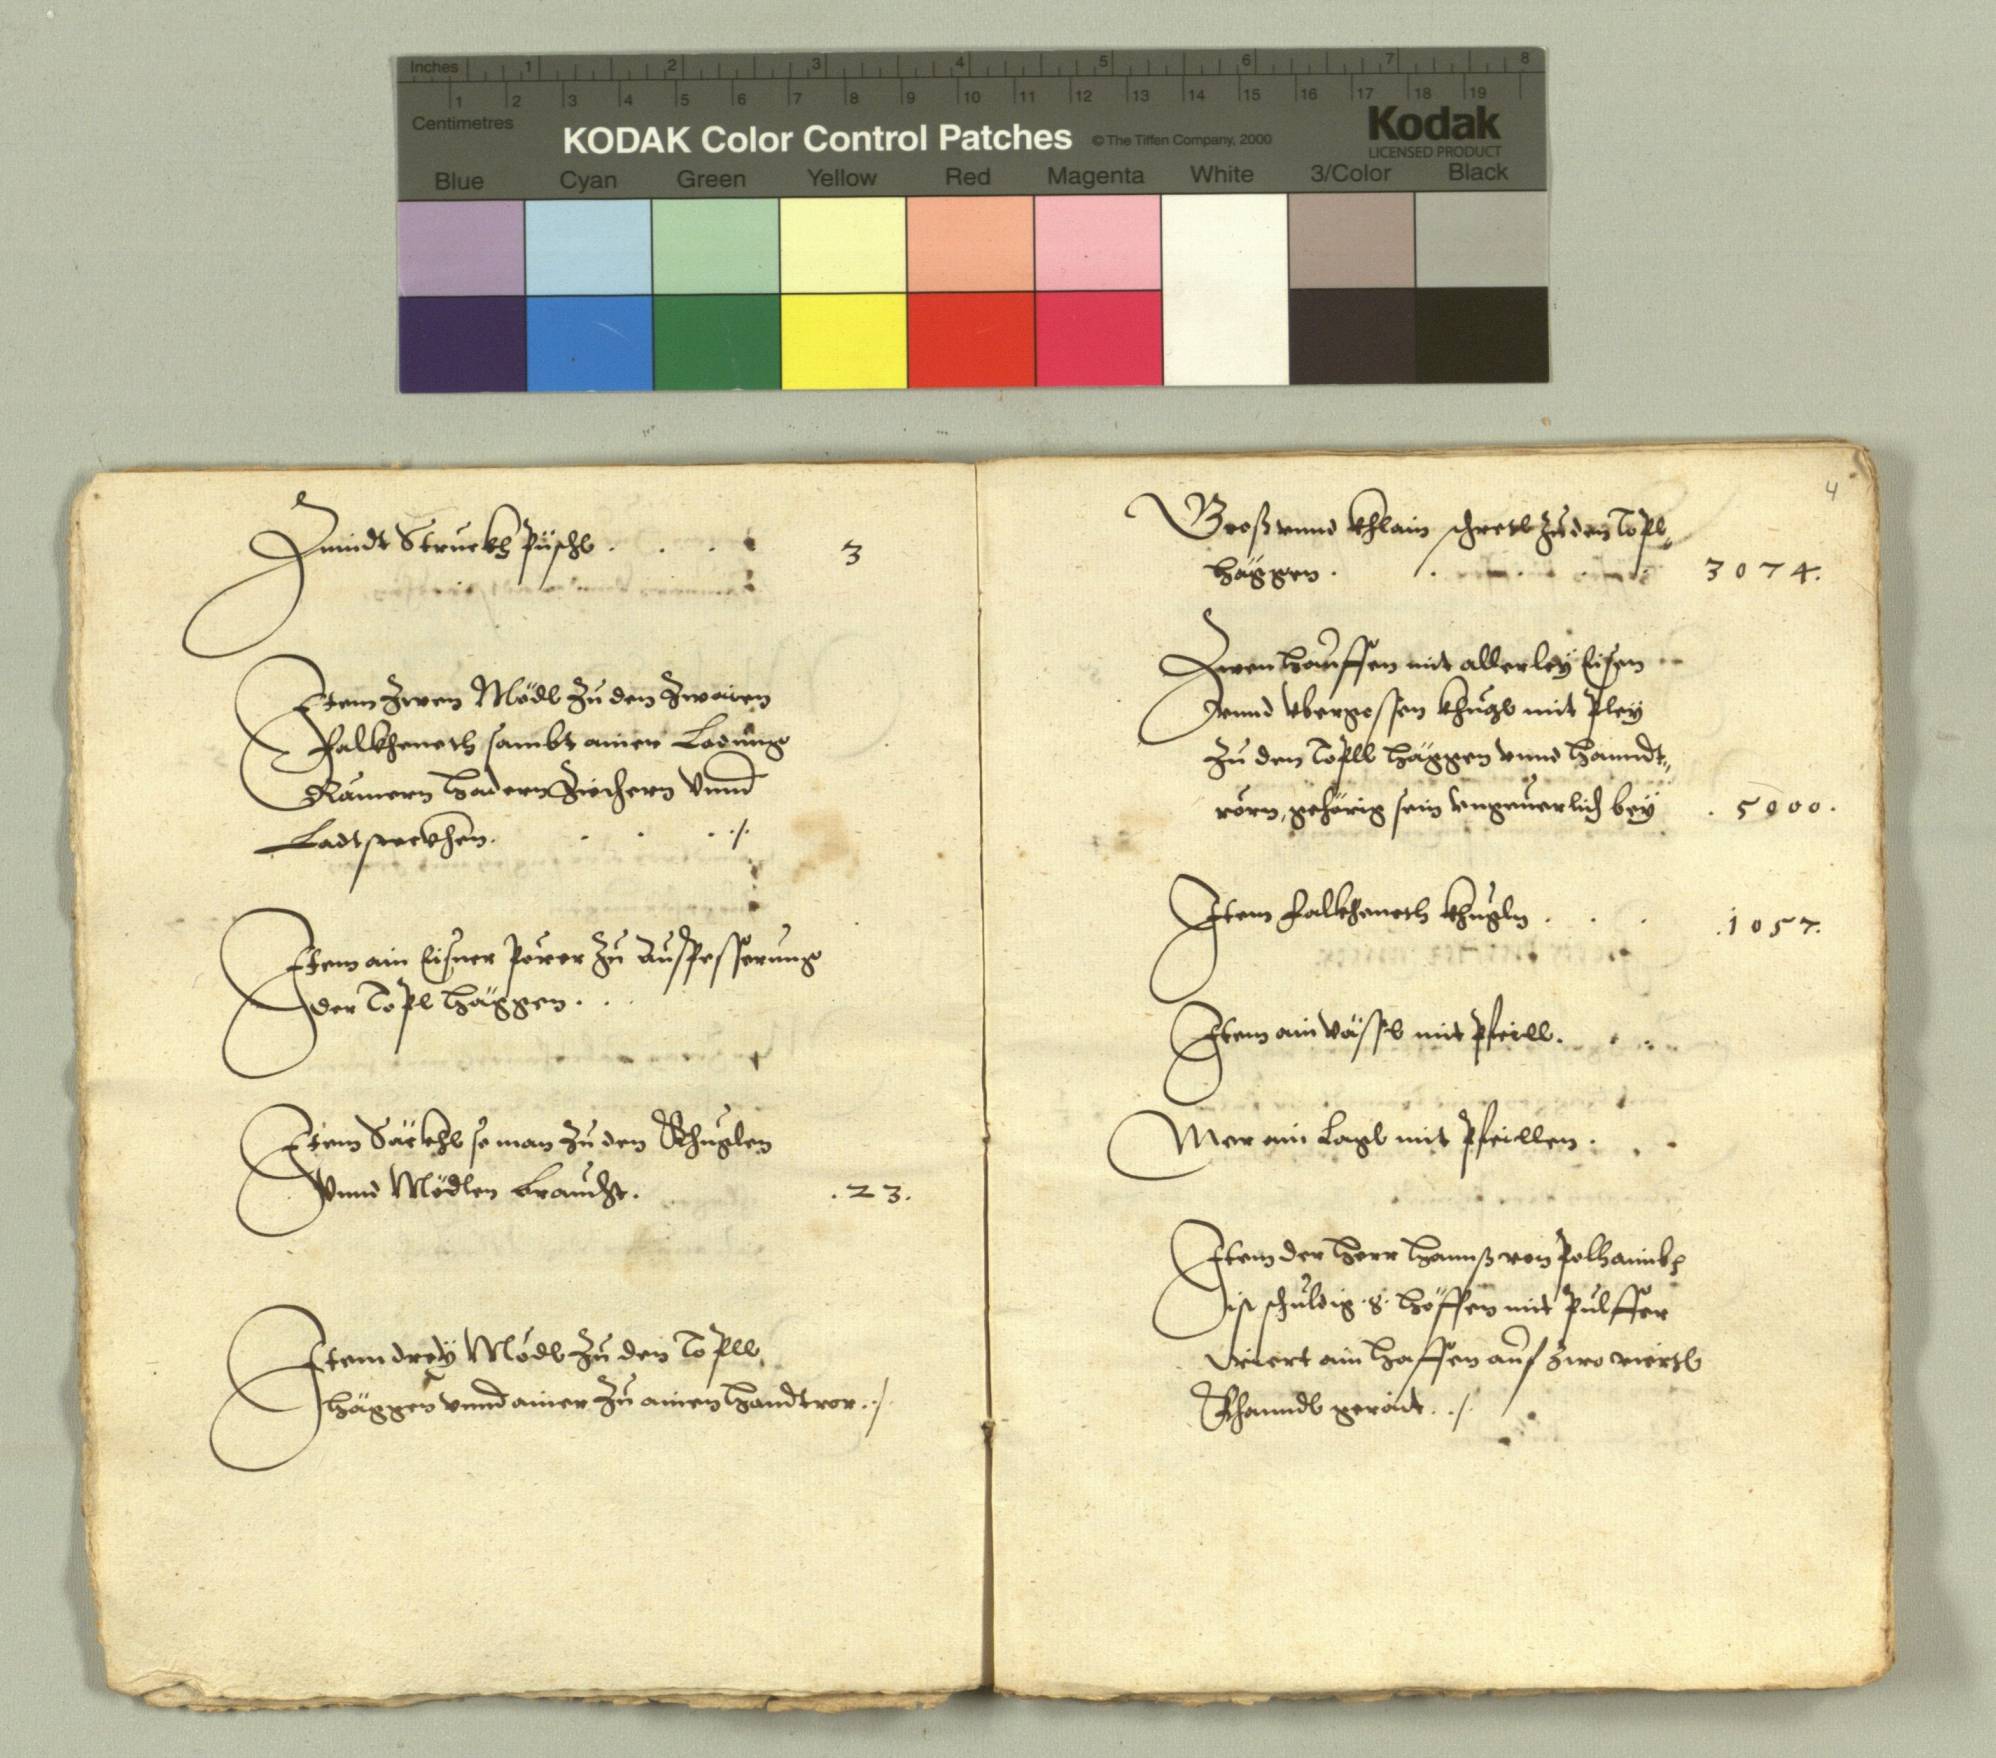 Inches 1 2 3 4 5 6 7 8
1 2 3 4 5 6 7 8 9 10 11 12 13 14 15 16 17 18 19
Centimetres
KODAK Color Control Patches © The Tiffen Company, 2000
Kodak
LICENSED PRODUCT
Blue Cyan Green Yellow Red Magenta White 3/Color Black
Zündt Strückh Püschl . . . . 3
Item Zwen Mödl zu den Zwaien
falkheneth sambt ainer Ladung
Raumern hadern Ziechern Vnnd
Ladt
Item ain Eisner Porer zu Ausspesserung
der Topl häggen . . .
Item Säckhl so man zu den Khuglen
Vnnd Mödlen braucht. .23.
Item drey Mödl zu den Topll
häggen vnnd ainer zu ainen handtror ./.
4
Groß vnnd khlain schretl zu den Topl„
häggen . 3074.
Zwen hauffen mit allerley Eisen
vnnd Vbergossen khugl mit Pley
zu den Topll häggen vnnd hanndt„
rörn, gehörig sein vngeuerlich bey . 5000.
Item falkheneth khugln . . . .1057.
Item ain Vässl mit Pfeill. . .
Mer ain Lagl mit Pfeillen . . .
Item der herr hannß von Polhaimb
ist schuldig .8. höffen mit Pulffer
ain haffen auf zwo viertl
Khanndl geraidt. ./.